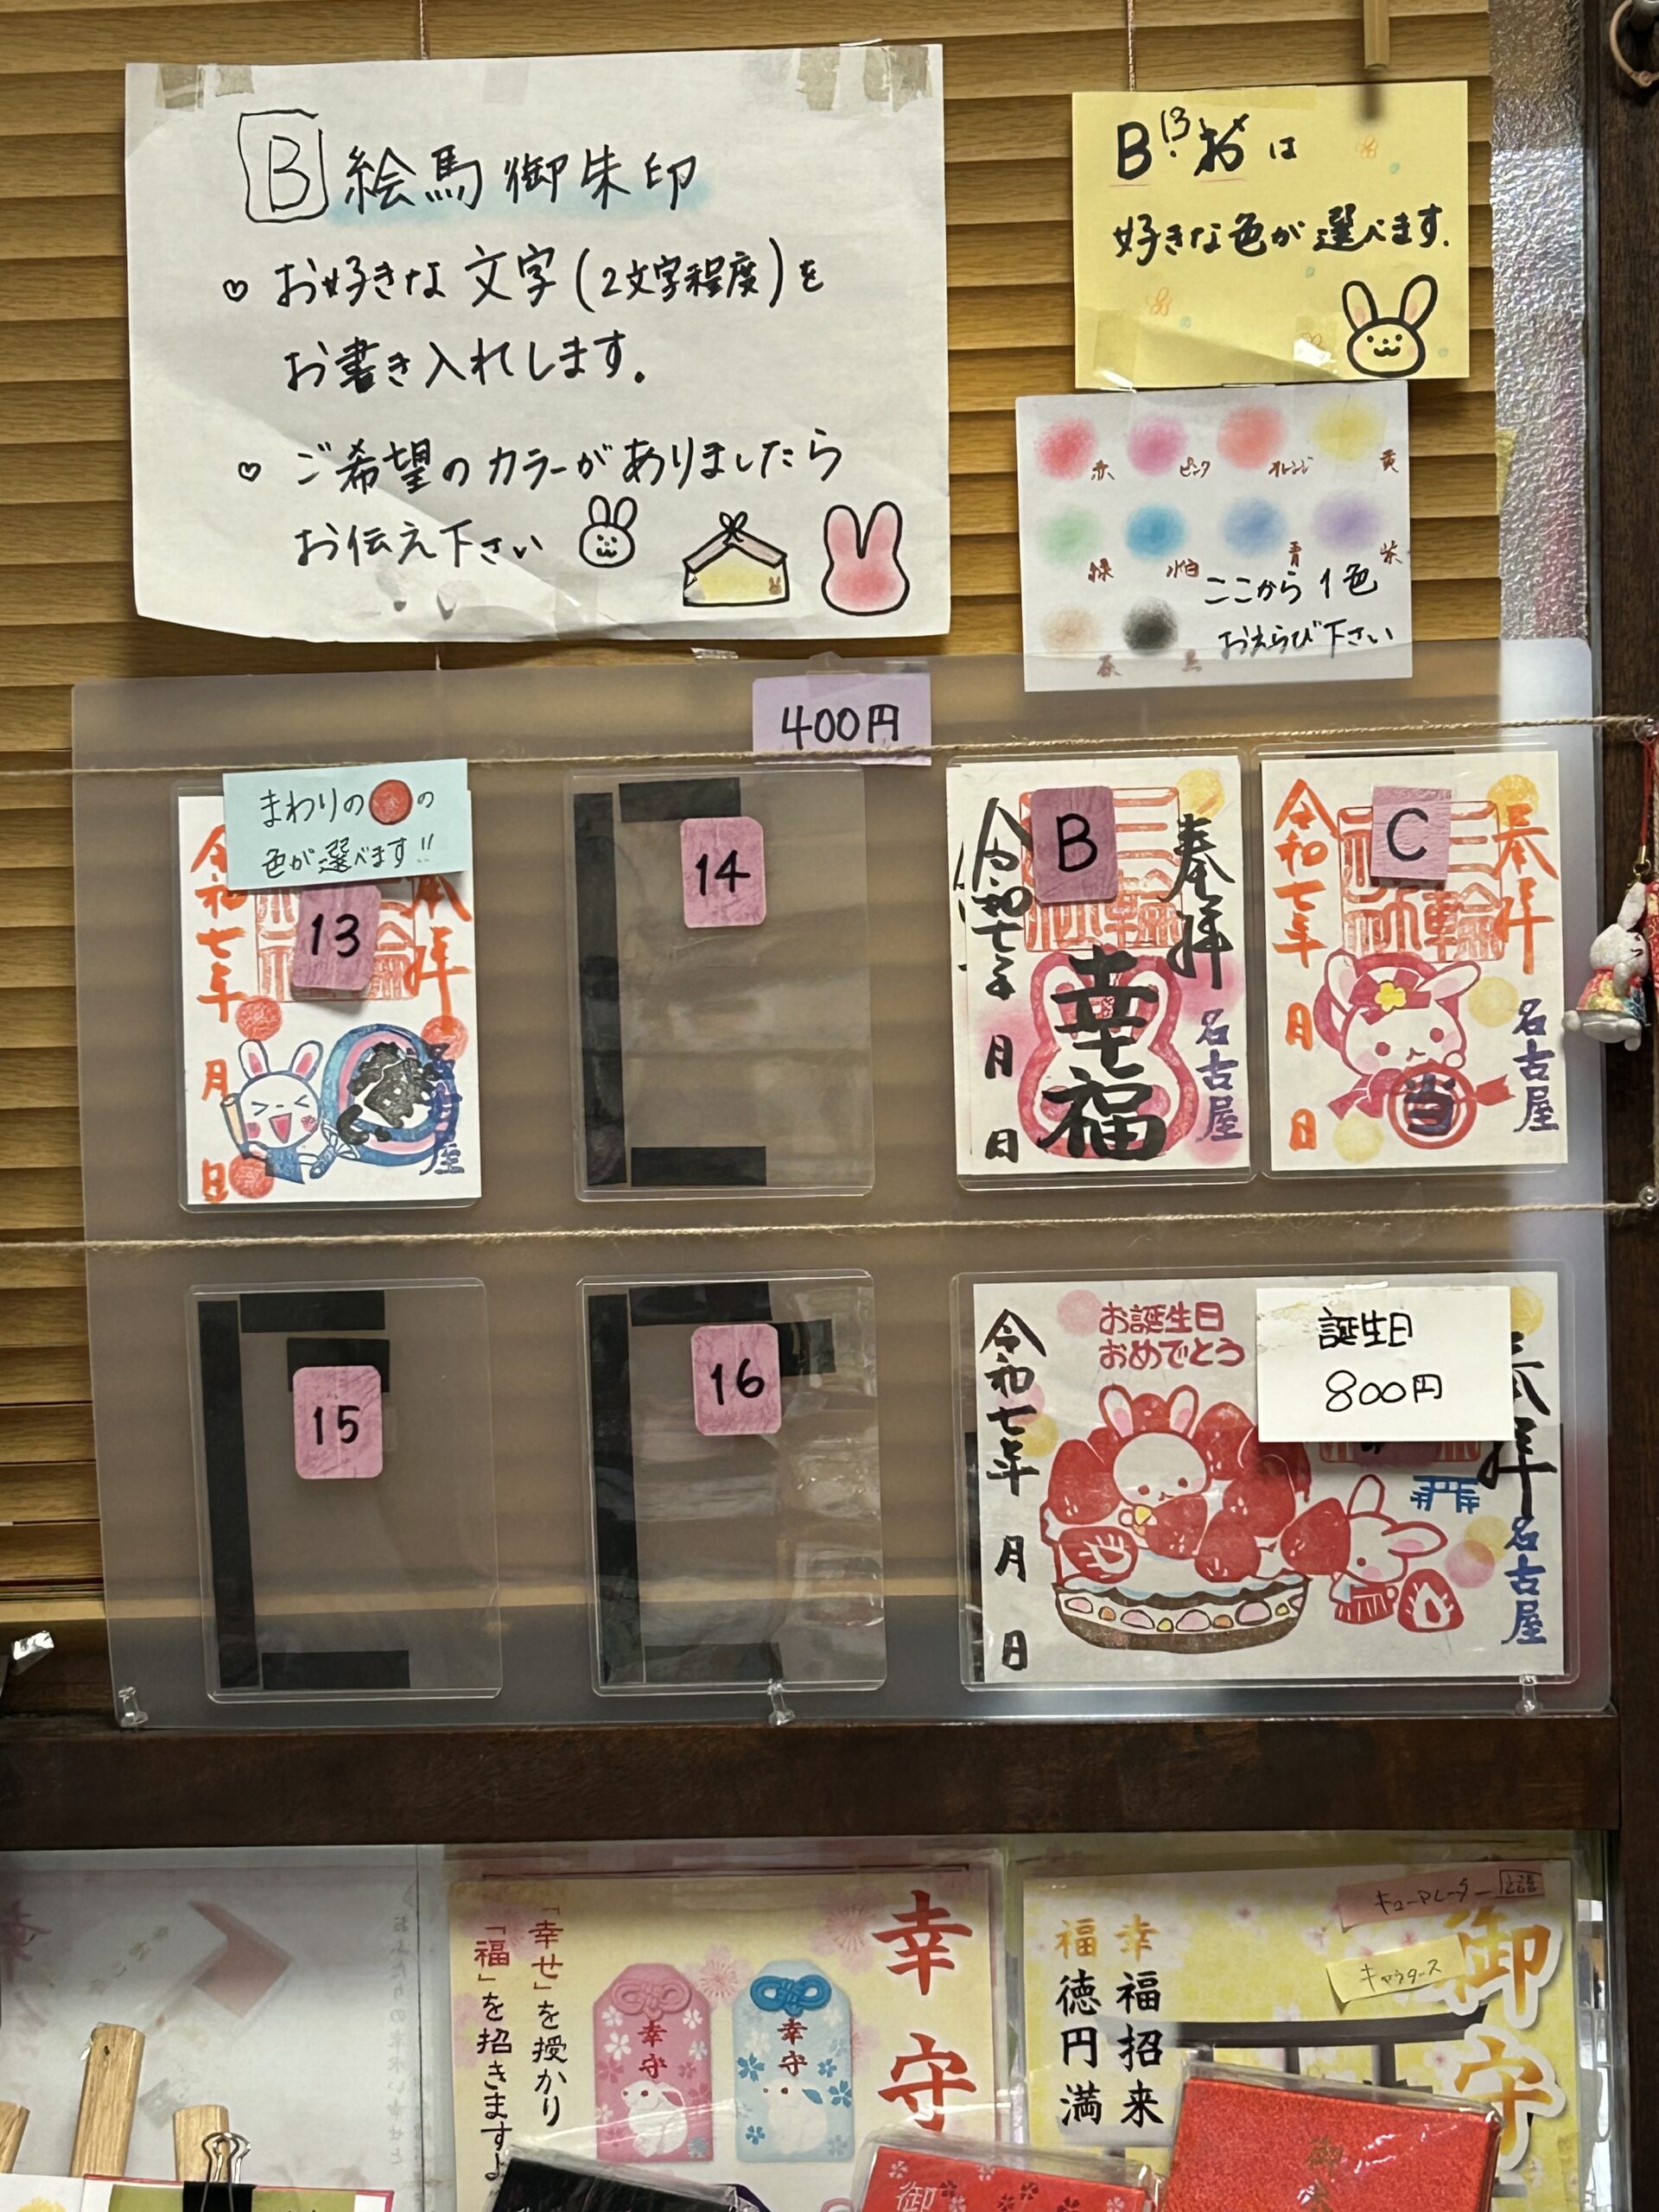 B 絵馬御朱印
♡ お好きな文字(2文字程度)を
お書き入れします。
♡ ご希望のカラーがありましたら
お伝え下さい
B 13. お は
好きな色が選べます.
赤 ピンク オレンジ 黄
緑 水色 青 紫
茶 黒
ここから1色
おえらび下さい
400円
まわりの の
色が選べます!!
13
奉拝
令和七年
月
日
名古屋
14
B
奉拝
三輪
幸福
令和七年
月
日
名古屋
C
奉拝
三輪
当
令和七年
月
日
名古屋
15
16
お誕生日
おめでとう
誕生日
800円
奉拝
令和七年
月
日
名古屋
幸守
「幸せ」を授かり
「福」を招きますよ
幸守
幸守
御守
幸福招来
福徳円満
キーワード
御